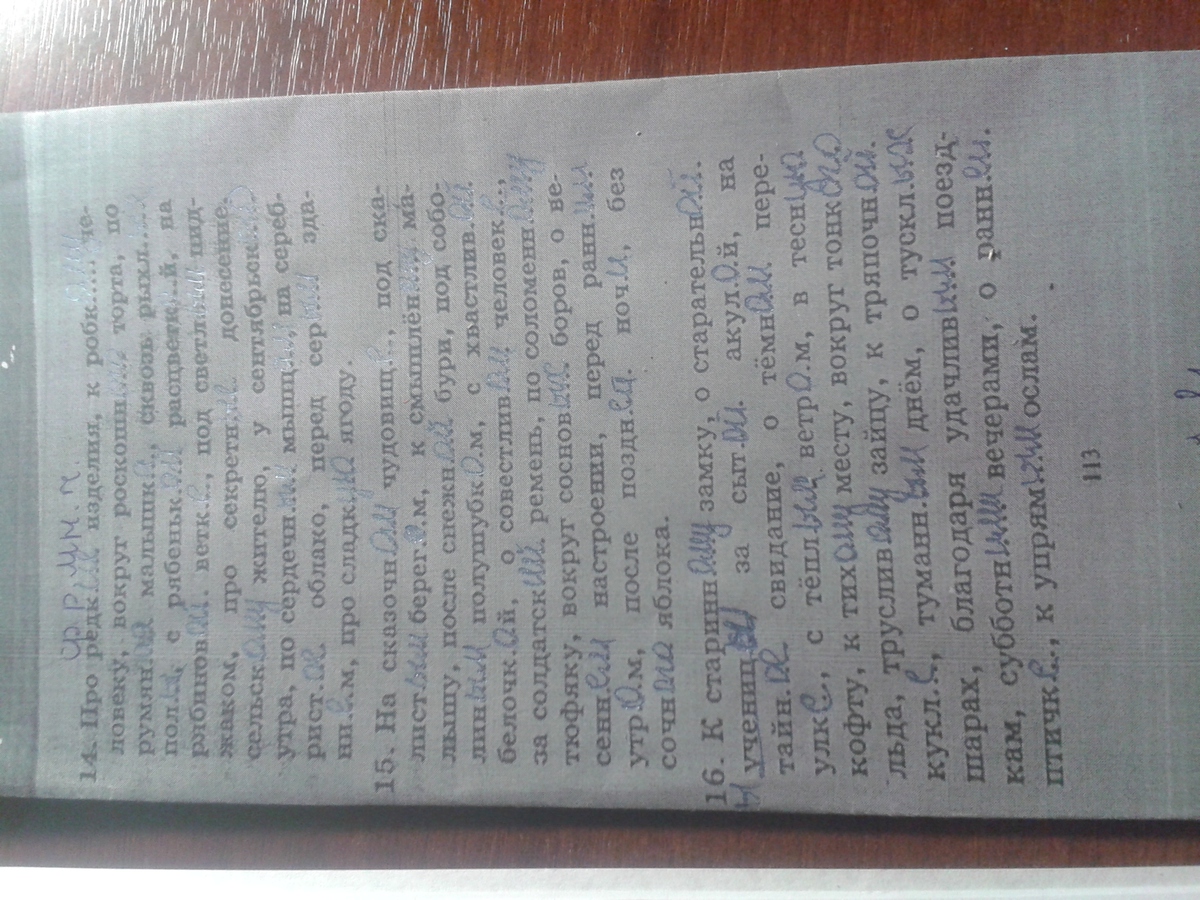 ср. р. мн. ч.
14. Про редкие изделия, к робк.....че-
ловеку, вокруг роскошн торта, по
румян малышк.., сквозь рыхл
пол, с рябеньк.ой расцветк.й, на
рябинов.ой ветк.е., под светлым пид-
жаком, про секретн.ое донесение,
сельск.ому жителю, у сентябрьского
утра, по сердечным мышцам на сереб-
рист.ое облако, перед серым зда-
ни.е.м, про сладкую ягоду.
15. На сказочном чудовищ.е., под ска-
листым берег.о.м, к смышлёному ма-
лышу, после снежной бури, под собо-
линым полушубк.о.м, с хвастлив.ой
белочк.ой, о совестливом человек.е.,
за солдатский ремень, по соломенному
тюфяку, вокруг сосновых боров, о ве-
сеннем настроении, перед ранним
утро.м, после поздн.ей. ноч.и, без
сочного яблока.
16. К старинному замку, о старательной.
ы учениц.ы за сыт.ой. акул.ой, на
тайн.ое свидание, о тёмном пере-
улке., с тёплым ветр.о.м, в тесную
кофту, к тихому месту, вокруг тонкого
льда, трусливому зайцу, к тряпочной.
кукл.е, туманн.ым днём, о тусклых
шарах, благодаря удачливым поезд-
кам, субботними вечерами, о ранн.ей.
птичк.е., к упрямым ослам.
113